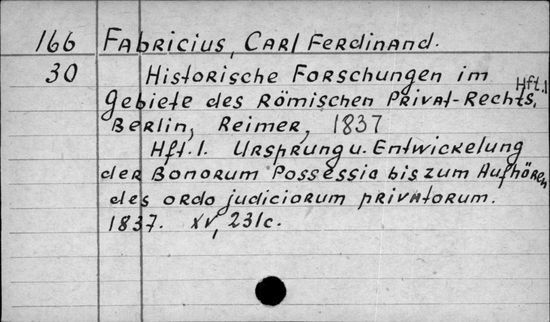 166 Fabricius, Carl Ferdinand.
30 Historische Forschungen im
Gebiete des Römischen Privat-Rechts, Hft.1
Berlin, Reimer, 1837
Hft.1. Ursprung u. Entwickelung
der Bonorum Possessio bis zum Aufhören
des ordo judiciorum privatorum.
1837. XV, 231c.